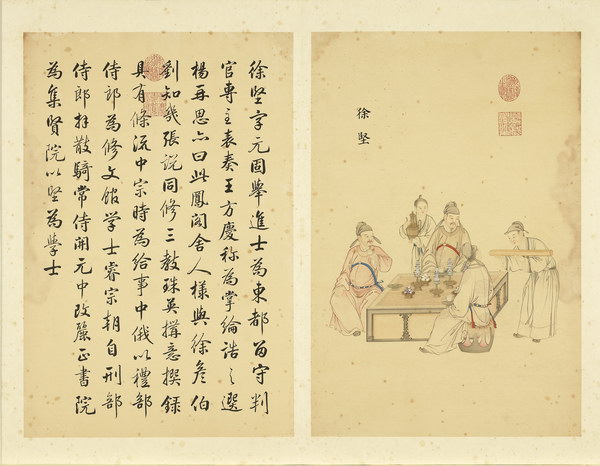 徐坚
徐坚字元固舉進士為東都留守判
官專主表奏王方慶称為掌綸誥之選
楊再思亦曰此鳳閣舍人樣與徐彦伯
劉知幾張說同修三教珠英搆意撰録
具有條流中宗時為給事中俄以禮部
侍郎為修文館学士睿宗朝自刑部
侍郎拜散騎常侍開元中改麗正書院
為集賢院以坚為學士